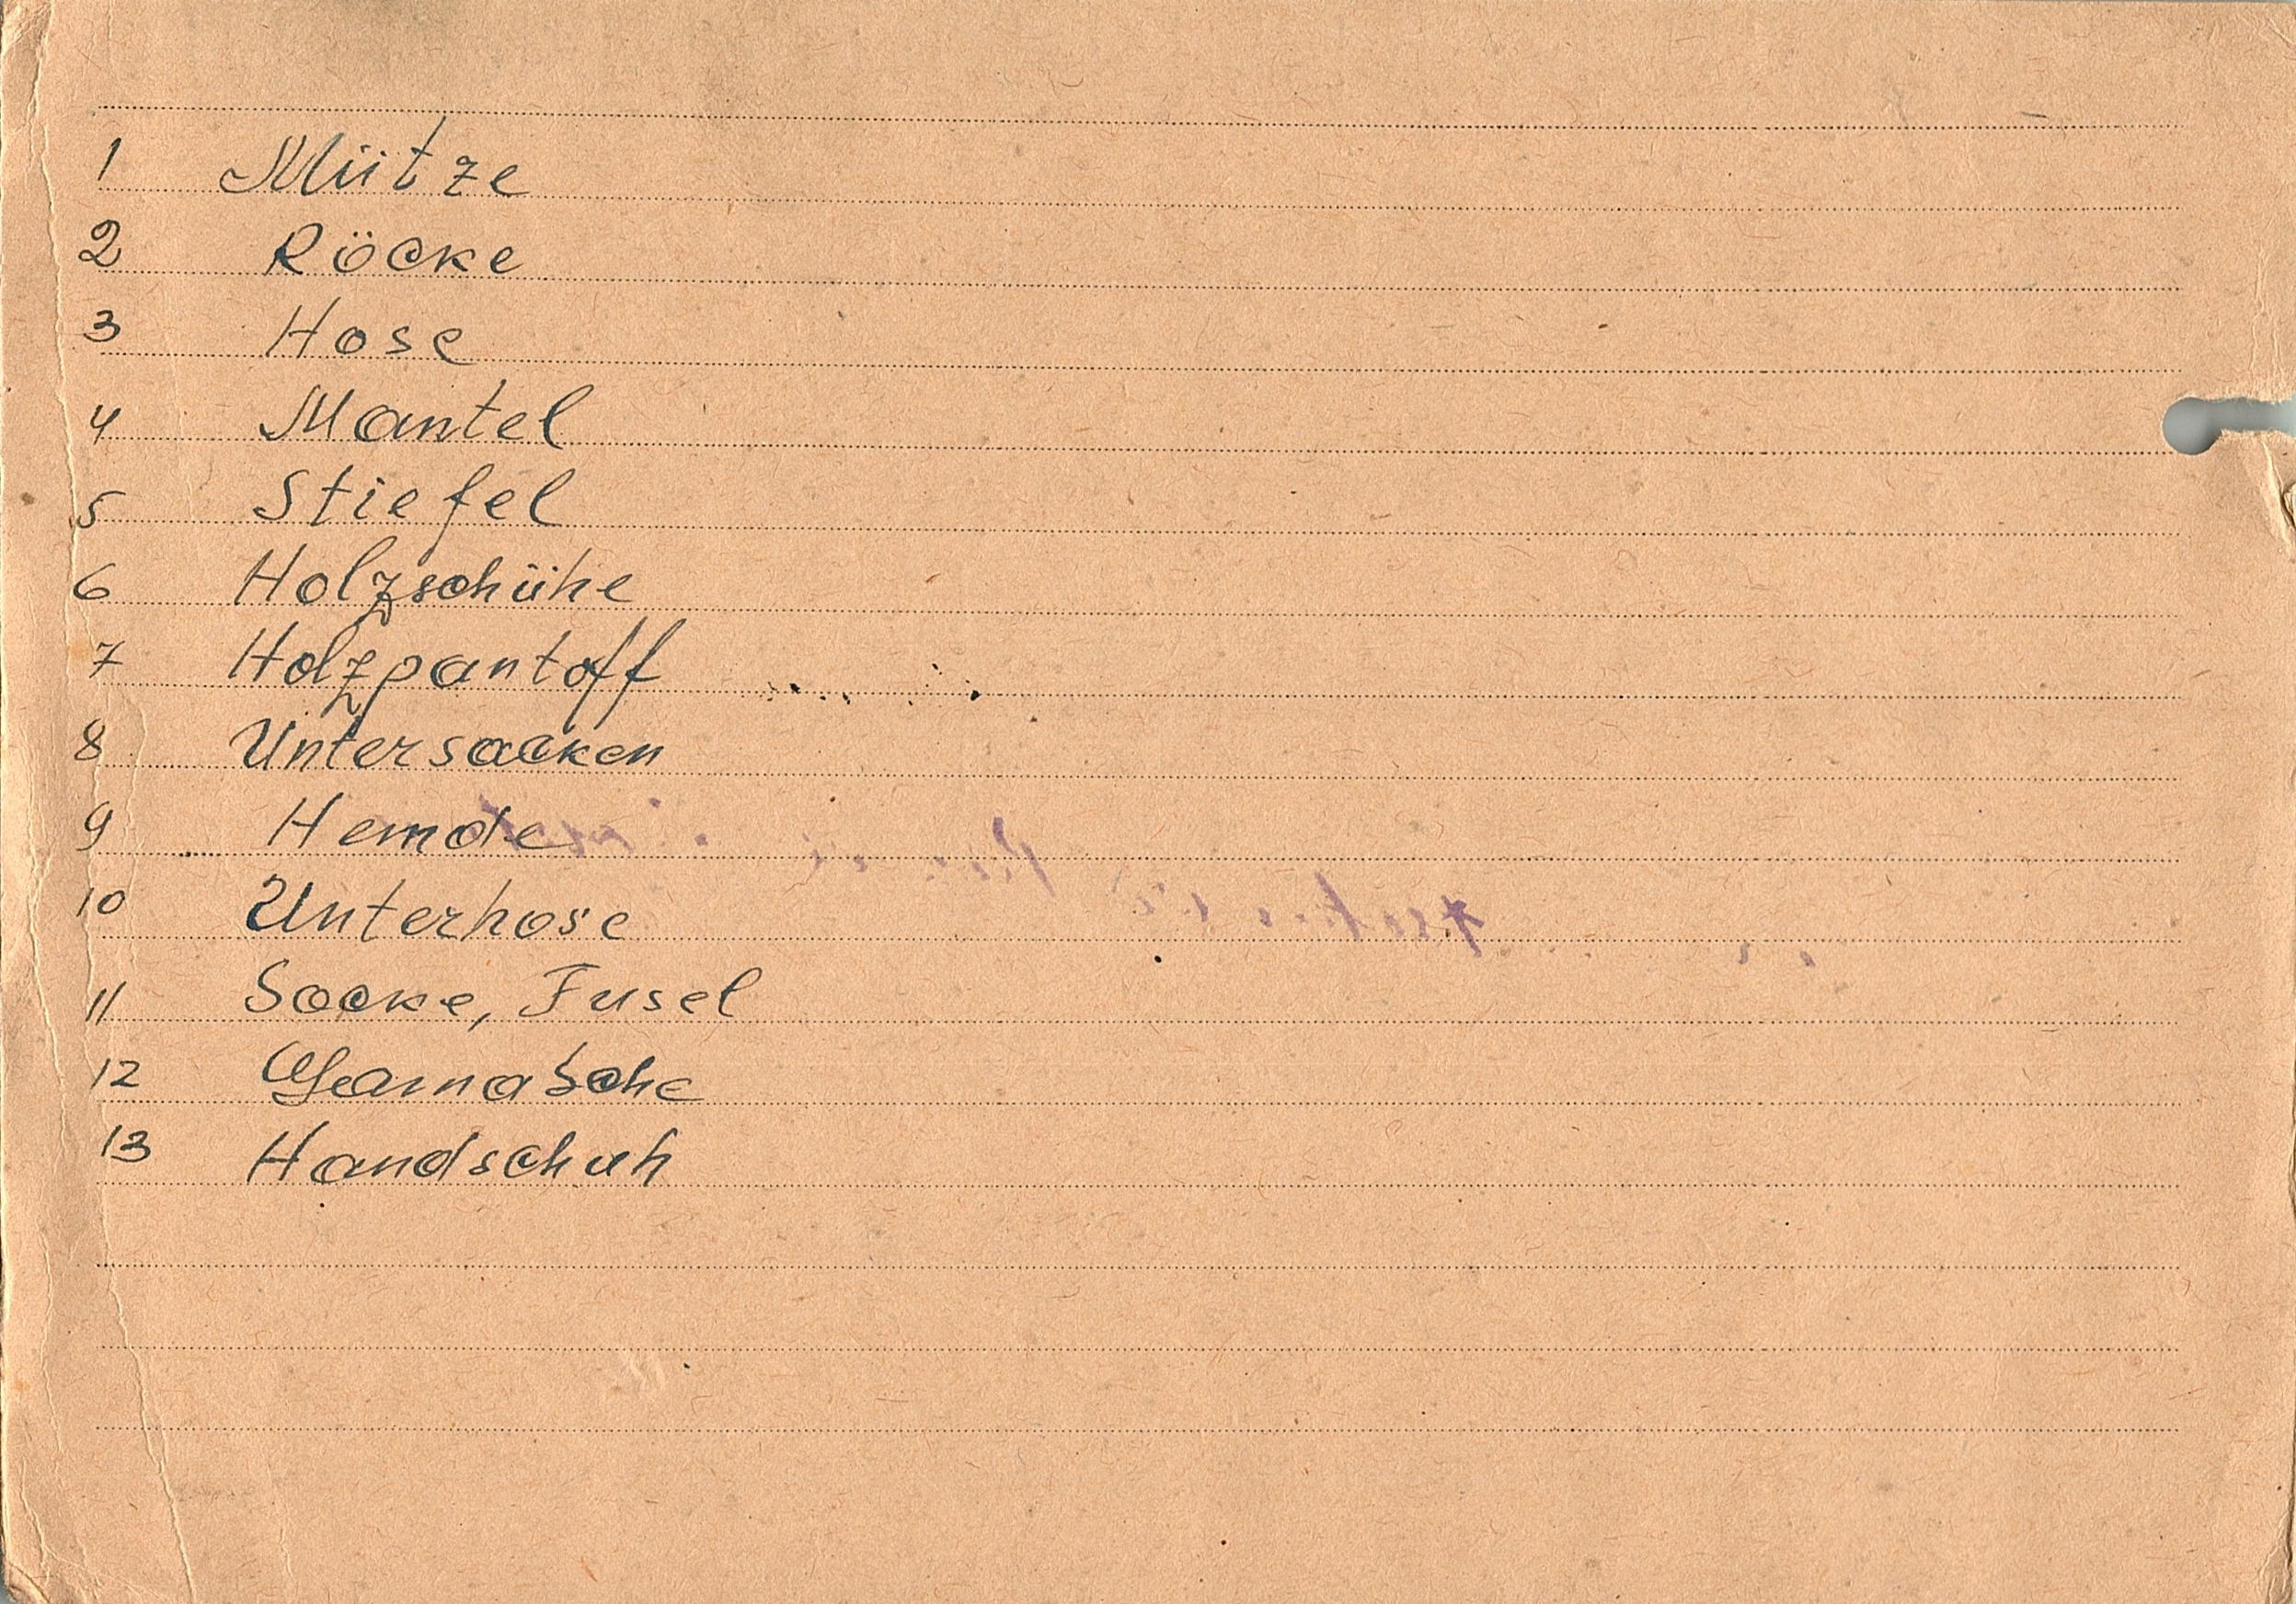 1 Mütze
2 Röcke
3 Hose
4 Mantel
5 Stiefel
6 Holzschühe
7 Holzpantoff
8 Untersacken
9 Hemde
10 Unterhose
11 Socke, Fusel
12 Gamasche
13 Handschuh